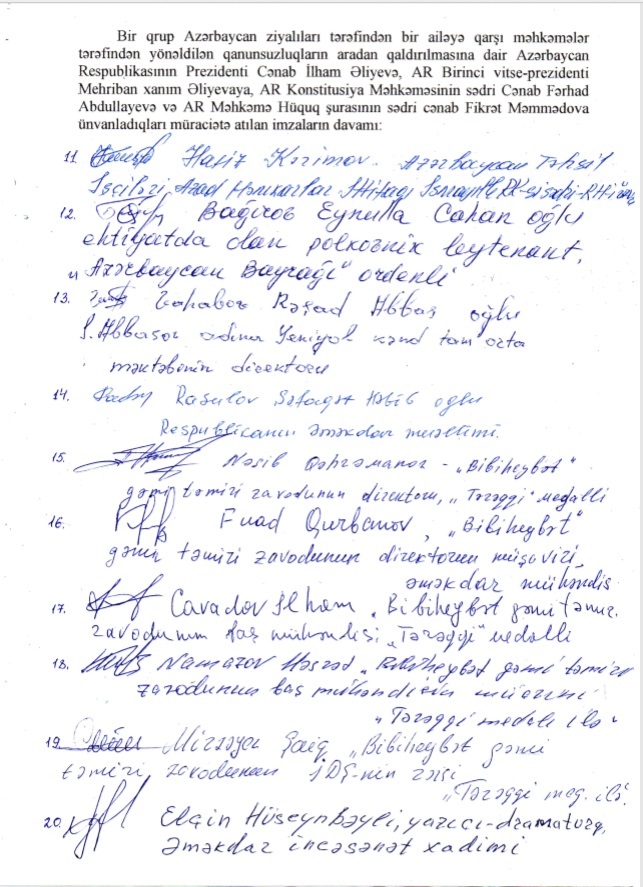 Bir qrup Azərbaycan ziyalıları tərəfindən bir ailəyə qarşı məhkəmələr
tərəfindən yönəldilən qanunsuzluqların aradan qaldırılmasına dair Azərbaycan
Respublikasının Prezidenti Cənab İlham Əliyevə, AR Birinci vitse-prezidenti
Mehriban xanım Əliyevaya, AR Konstitusiya Məhkəməsinin sədri Cənab Fərhad
Abdullayevə və AR Məhkəmə Hüquq şurasının sədri cənab Fikrət Məmmədova
ünvanladıqları müraciətə atılan imzaların davamı:
11. Hafiz Kərimov. Azərbaycan Təhsil
İşçiləri Azad Həmkarlar İttifaqı
12. Bağırov Eynulla Cahan oğlu
ehtiyatda olan polkovnik leytenant,
"Azərbaycan Bayrağı" ordenli
13. Rəşad Abbas oğlu
S. Abbasov adına Yeniyol kənd tam orta
məktəbinin direktoru
14. Rasulov Səfaqət Həbib oğlu
Respublikanın əməkdar müəllimi.
15. Nəsib Qəhrəmanov - "Bibiheybət"
gəmi təmiri zavodunun direktoru, "Tərəqqi" medallı
16. Fuad Qurbanov, "Bibiheybət"
gəmi təmiri zavodunun direktorun müşaviri,
əməkdar mühəndis
17. Cavadov İlham "Bibiheybət gəmi təmir.
zavodunun baş mühəndisi "Tərəqqi" medallı
18. Namazov Həsrəd "Bibiheybət gəmi təmiri
zavodunun baş mühəndisin müavini
"Tərəqqi medalı ilə"
19. Mirzəyev Şaiq "Bibiheybət gəmi
təmiri zavodunun İDS-nin rəisi
"Tərəqqi med. ilə.
20. Elçin Hüseynbəyli, yazıçı-dramaturq,
əməkdar incəsənət xadimi